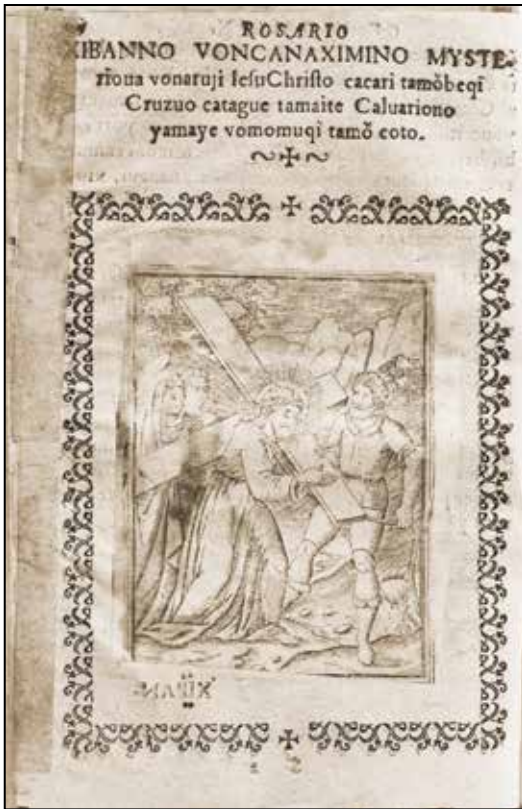 ROSARIO
XIBANNO VONCANAXIMINO MYSTE-
riona vonaruji IesuChristo cacari tamǒbeqi
Cruzuo catague tamaite Caluariono
yamaye vomomuqi tamǒ coto.